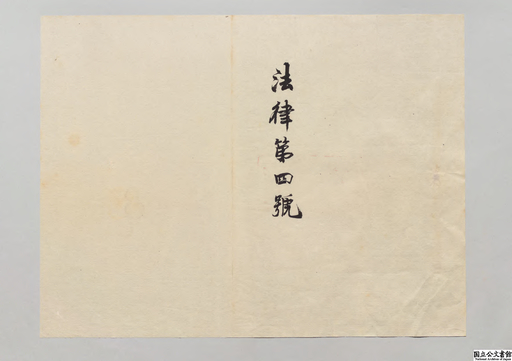 法律第四號
国立公文書館
National Archives of Japan